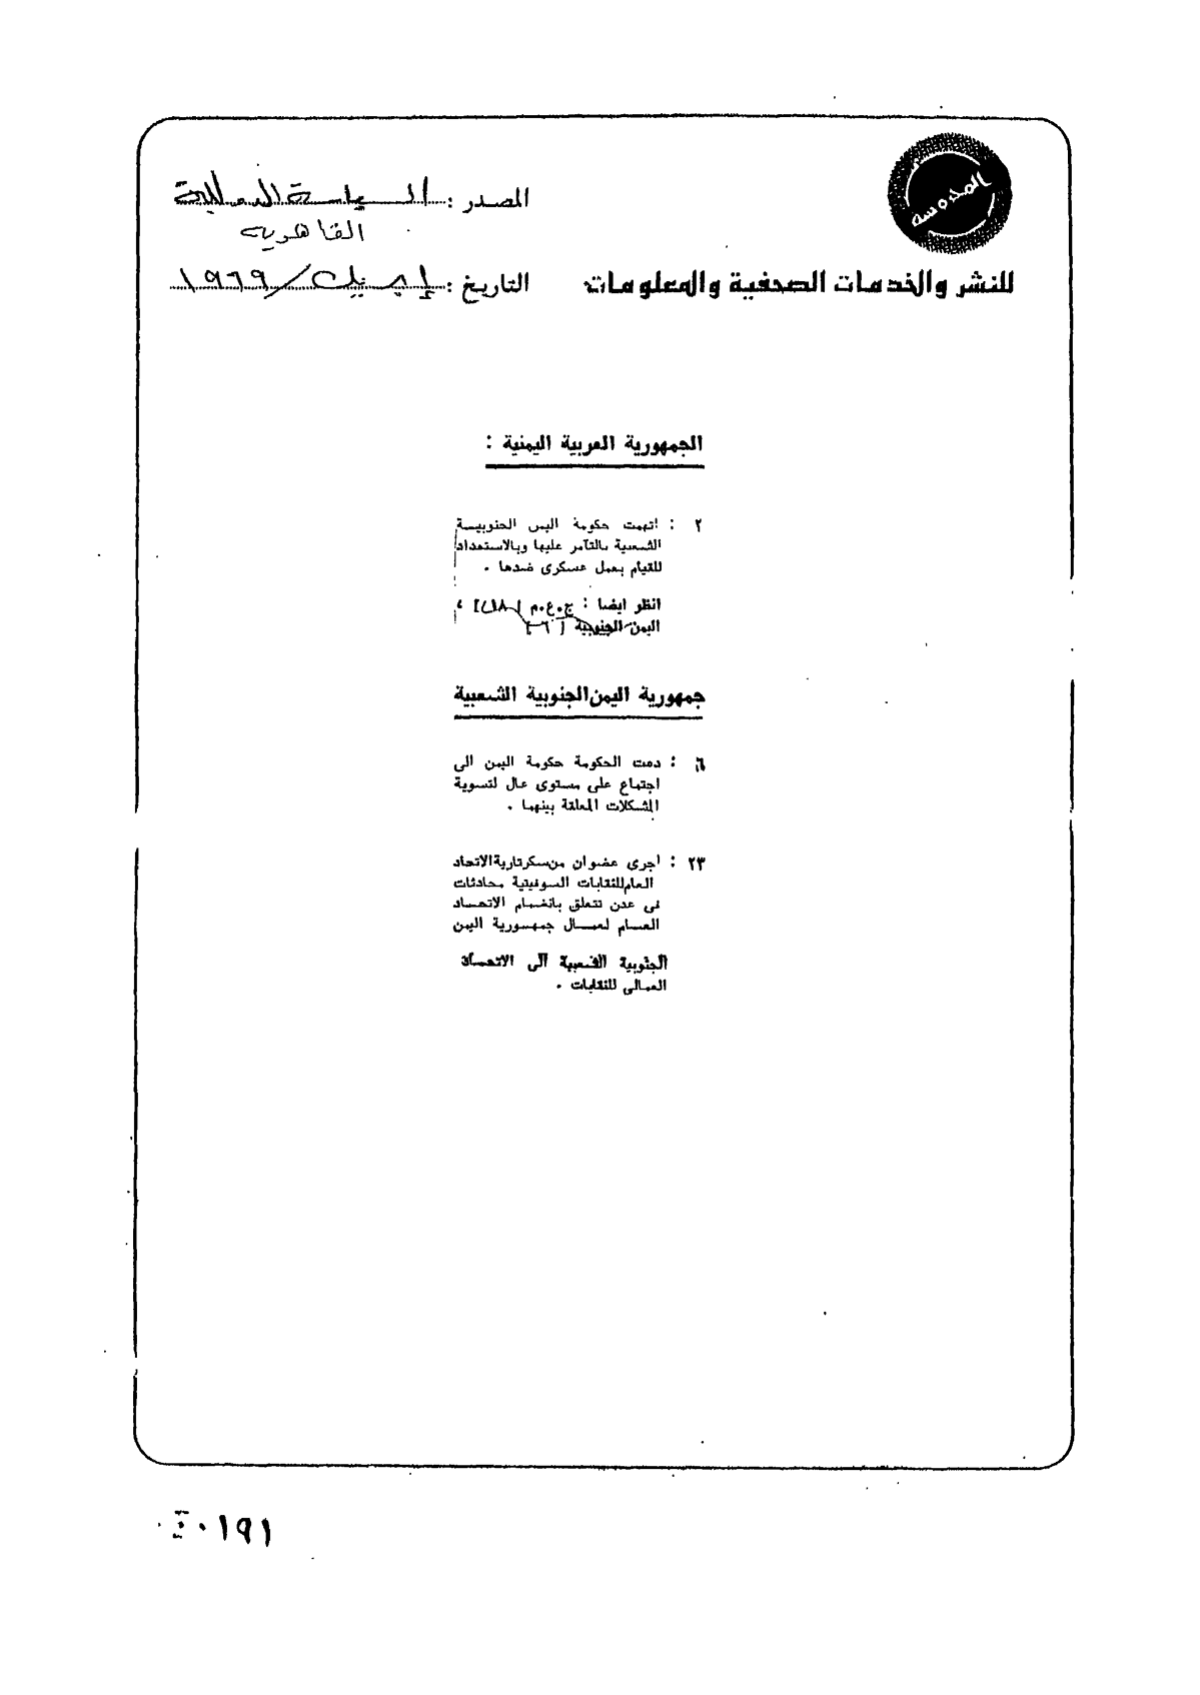 المحروسة
المصدر : السياسة الدولية
القاهرية
للنشر والخدمات الصحفية والمعلومات
التاريخ : إبريل / ١٩٦٩
الجمهورية العربية اليمنية :
٢ : اتهمت حكومة اليمن الجنوبيـة
الشعبية بالتآمر عليها وبالاستعداد
للقيام بعمل عسكرى ضدها .
انظر ايضا : ج.ع.م [ ١٨ ] ،
اليمن الجنوبية [ ٦ ]
جمهورية اليمن الجنوبية الشعبية
٦ : دعت الحكومة حكومة اليمن الى
اجتماع على مستوى عال لتسوية
المشكلات المعلقة بينهما .
٢٣ : اجرى عضوان من سكرتارية الاتحاد
العام للنقابات السوفيتية محادثات
فى عدن تتعلق بانضمام الاتحـاد
العـام لعمـال جمهـورية اليمن
الجنوبية الشعبية الى الاتحـاد
العمالى للنقابات .
٠١٩١